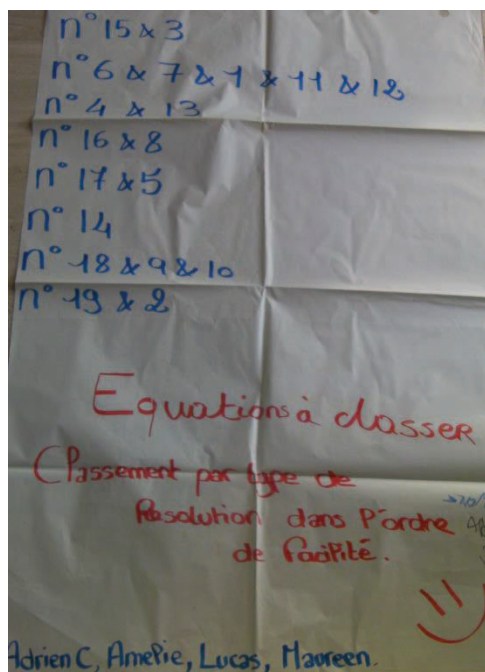 n° 15 & 3
n° 6 & 7 & 1 & 11 & 12
n° 4 & 13
n° 16 & 8
n° 17 & 5
n° 14
n° 18 & 9 & 10
n° 19 & 2
Equations à classer
Classement par type de
Résolution dans l'ordre
de facilité.
Adrien C, Amélie, Lucas, Maureen.